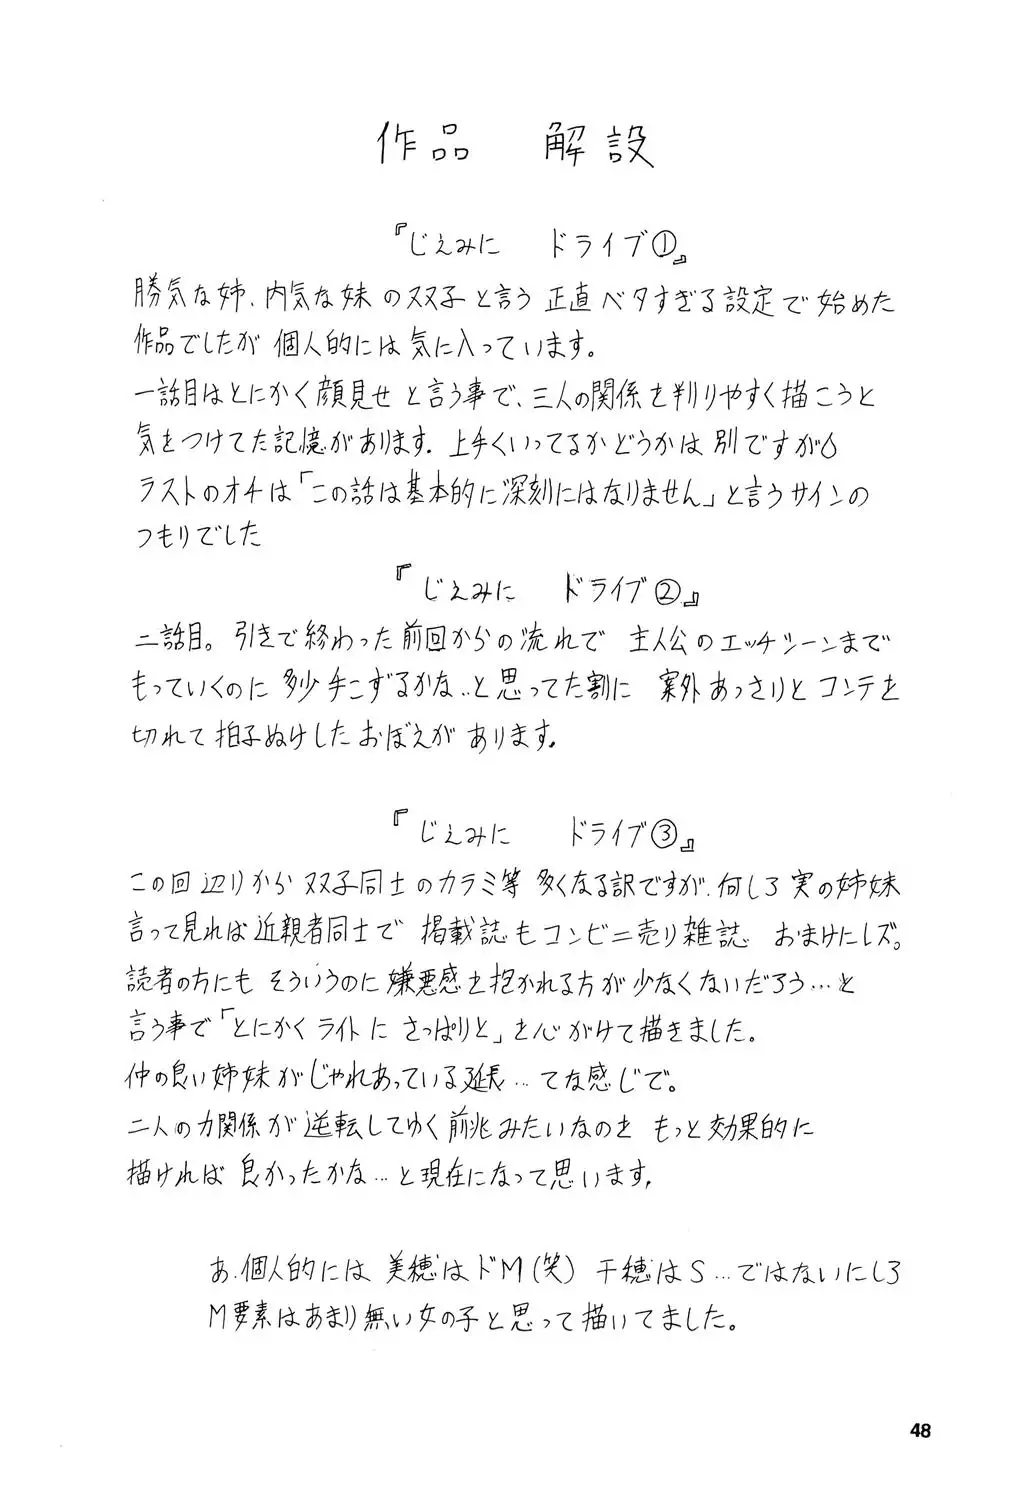 作品 解設
『じぇみに ドライブ①』
勝気な姉、内気な妹の双子と言う 正直ベタすぎる設定で始めた
作品でしたが 個人的には気に入っています。
一話目はとにかく顔見せと言う事で、三人の関係を判りやすく描こうと
気をつけてた記憶があります。上手くいってるかどうかは 別ですが
ラストのオチは「この話は基本的に深刻にはなりません」と言うサインの
つもりでした
『じぇみに ドライブ②』
二話目。引きで終わった前回からの流れで 主人公のエッチシーンまで
もっていくのに 多少手こずるかな‥と思ってた割に 案外あっさりとコンテを
切れて拍子ぬけしたおぼえがあります。
『じぇみに ドライブ③』
この回辺りから双子同士のカラミ等 多くなる訳ですが、何しろ実の姉妹
言って見れば近親者同士で 掲載誌もコンビニ売り雑誌 おまけにレズ。
読者の方にも そういうのに嫌悪感を抱かれる方が少なくないだろう…と
言う事で「とにかくライトに さっぱりと」を心がけて描きました。
仲の良い姉妹がじゃれあっている延長…てな感じで。
二人の力関係が逆転してゆく前兆みたいなのを もっと効果的に
描ければ良かったかな…と現在になって思います。
あ、個人的には 美穂はドM(笑) 千穂はS…ではないにしろ
M要素はあまり無い女の子と思って描いてました。
48